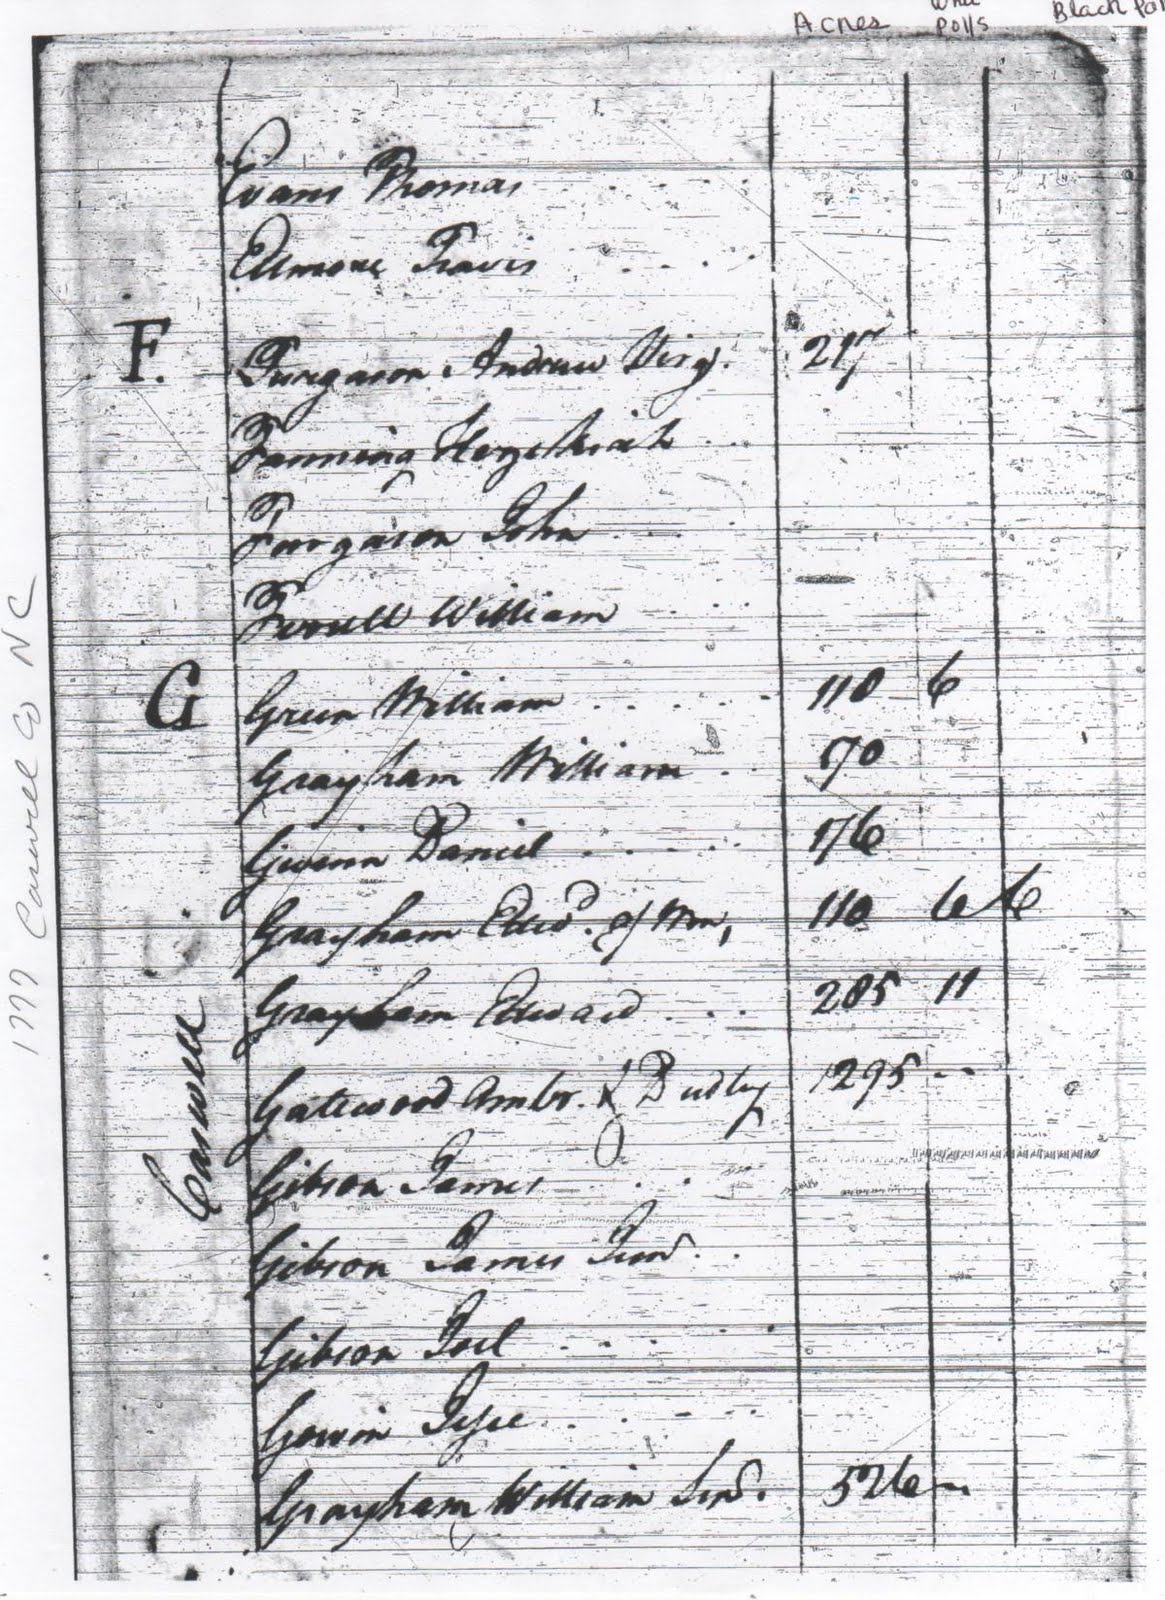 Acres White Polls Black Pol
Evans Thomas
Elmore Travis
F. Furgason Andrew Virg. 217
Fanning Hezekiah
Forgason John
Ferrell William
G Green William 110 6
Grayham William 170
Gwinn Daniel 176
Grayham Edwd. of Wm, 110 6 6
Grayham Edward 285 11
Gatewood Ambr. & Dudley 1295
Gibson James
Gibson James Junr.
Gibson Joel
Gowin
Grayham William Senr. 526
Caswell
1777 Caswell Co NC